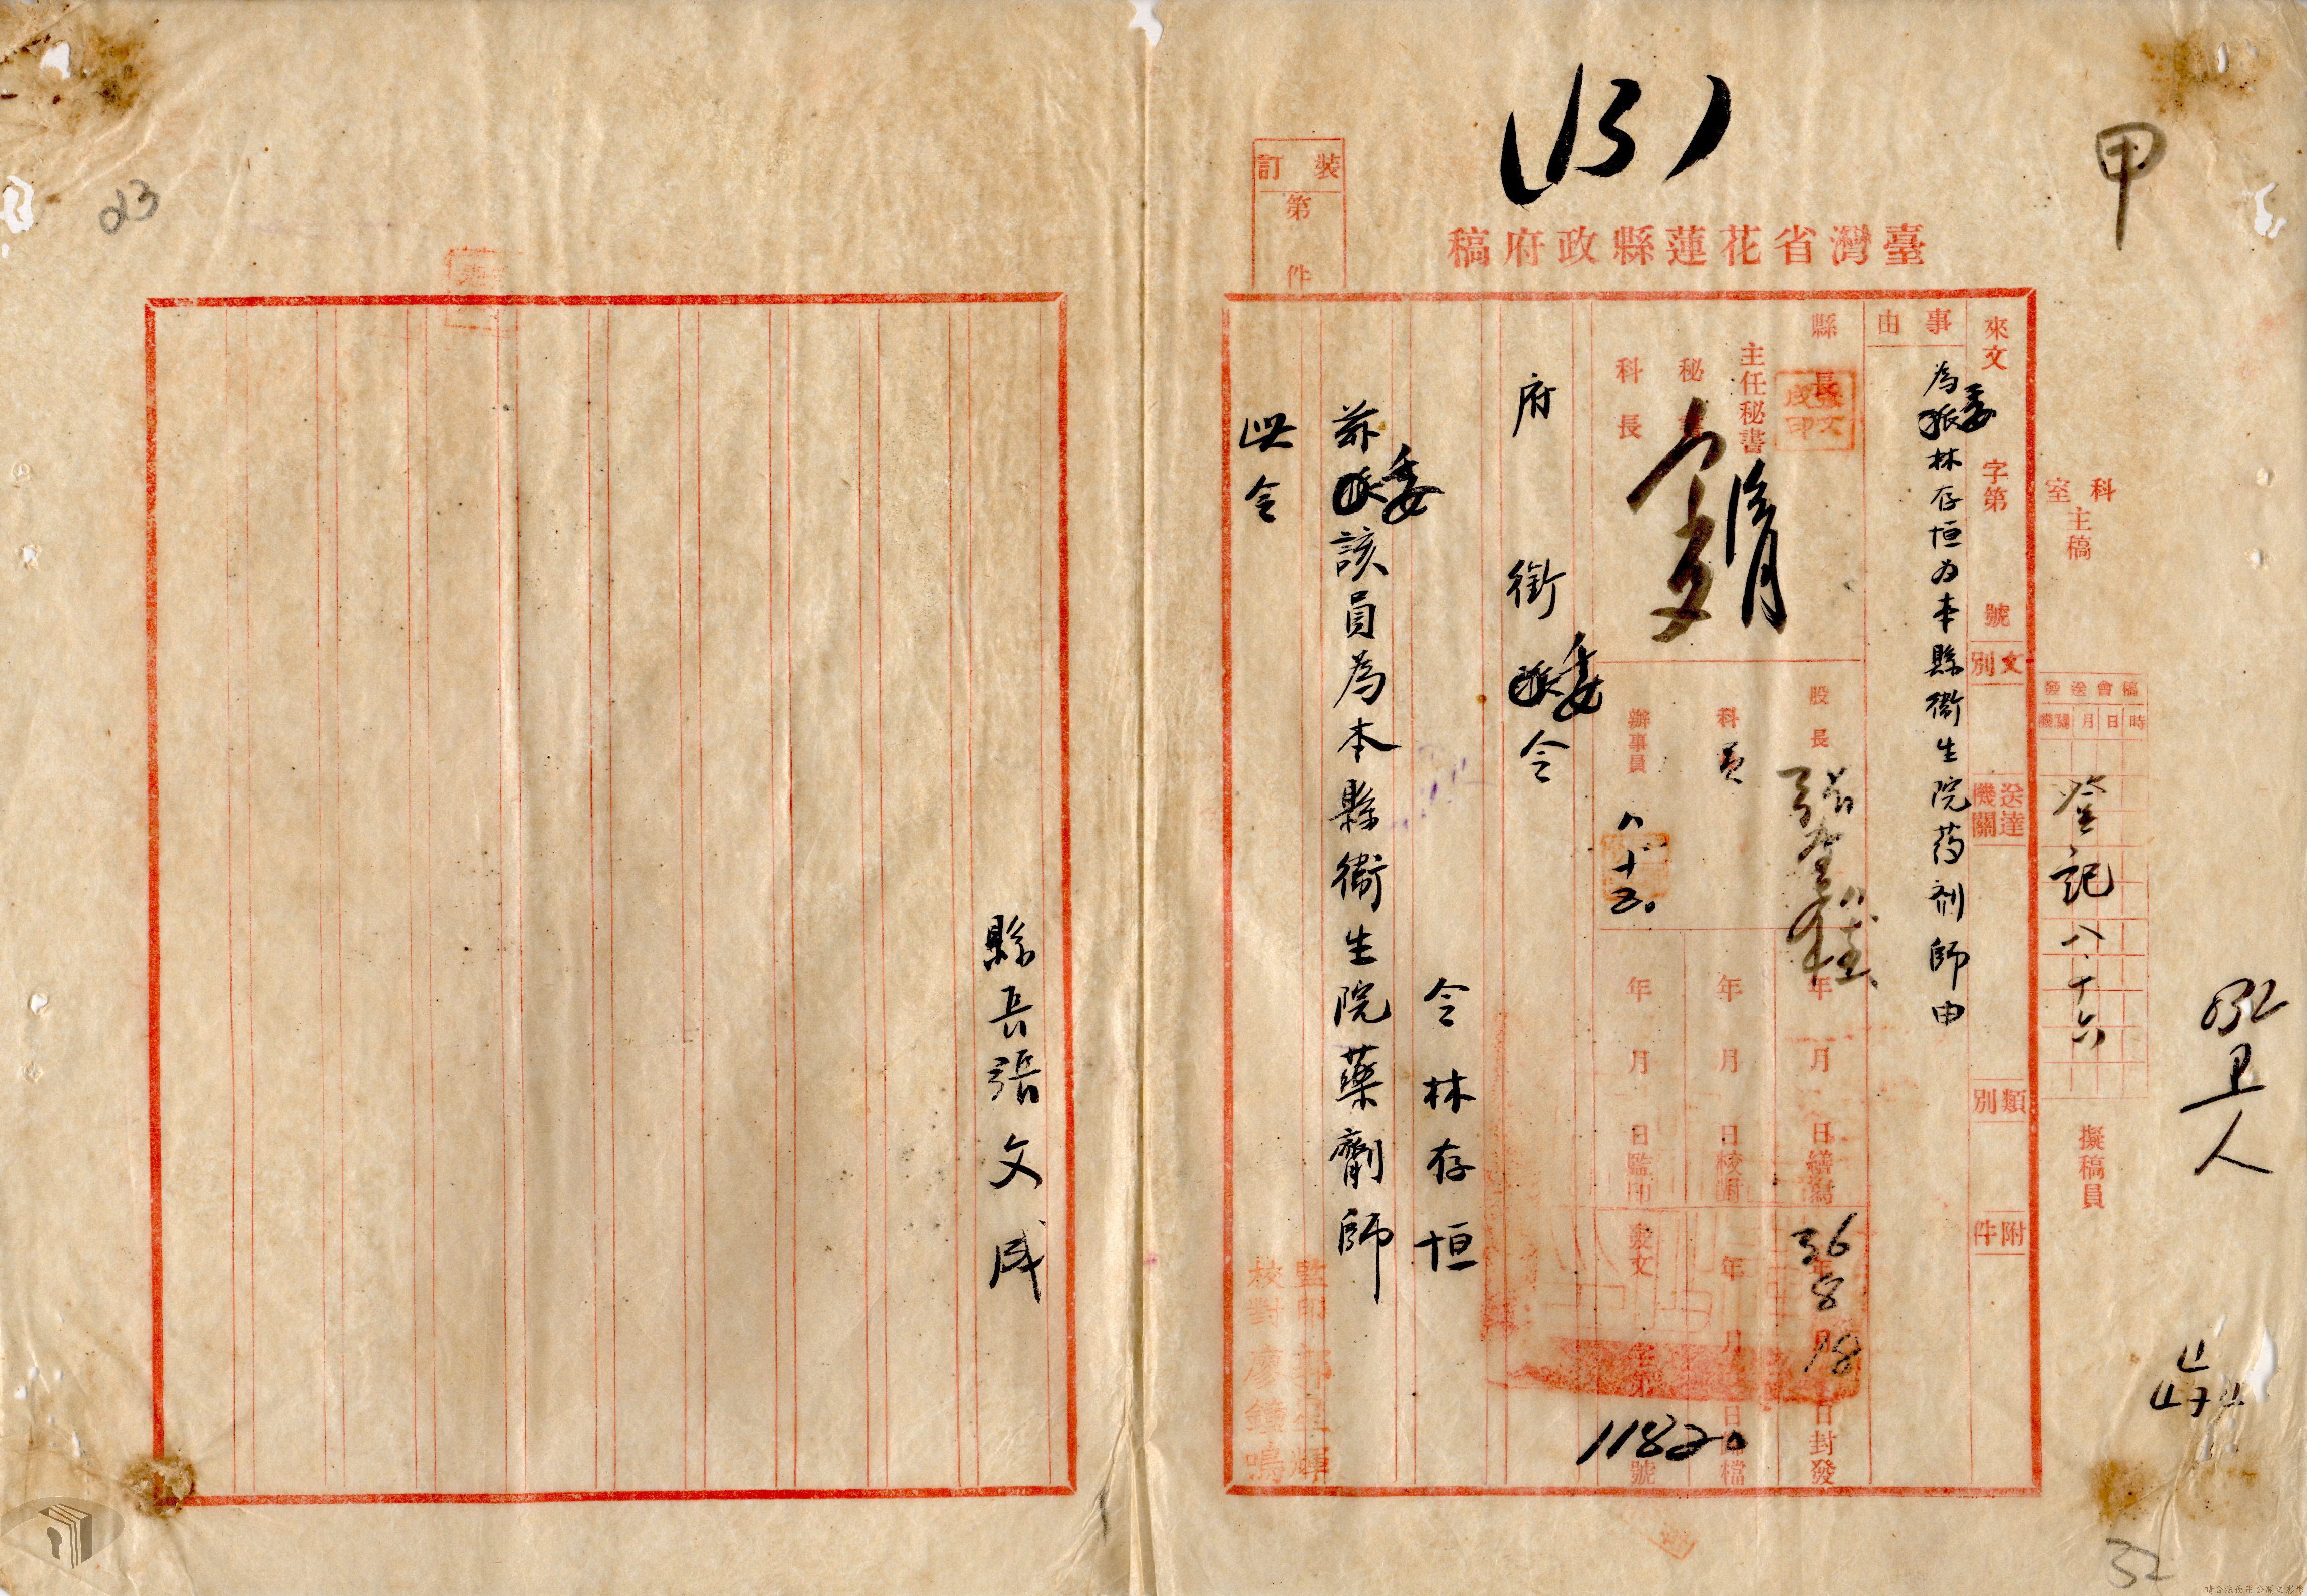 甲
(13)
臺灣省花蓮縣政府稿
裝訂
第 件
科室主稿
擬稿員
稿會送發
時日月機關
登記 八、十六
032
卫
人
來文 字第 號
文別
送達機關
類別
附件
事由
為委林存恒为本縣衞生院药剂師由
縣長
張文成印
主任秘書
秘
科長
股長
科員
辦事員
八、十五。
年 月 日繕寫
年 月 日校對
年 月 日監印
36年8月18日封發
年 月 日歸檔
發文 字第 號
11820
府 銜 委令
令林存恒
茲委該員為本縣衞生院藥劑師
此令
監印
校對 廖鐘鳴
縣長張文成
023
32
請合法使用公開之影像